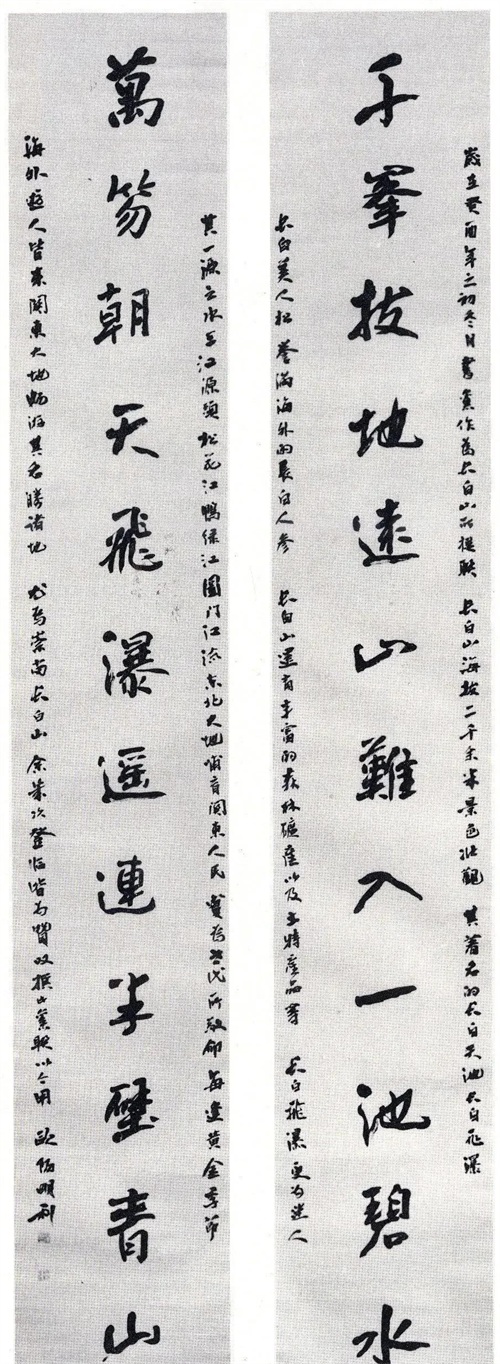 千峯拔地遠山難入一池碧水
歲在癸酉年之初冬月書舊作為长白山所撰联 长白山海拔二千余米景色壯觀 其著名的长白天池长白飞瀑
长白美人松 誉滿海外的長白人參 长白山還有丰富的森林礦產以及土特產品等 长白飛瀑更为迷人
萬笏朝天飛瀑遥連半壁青山
其一源之水乃江源頭松花江鴨绿江圖门江流东北大地哺育関東人民 實為世代所敬仰 每逢黄金季節
海外遊人皆来関東大地畅游其名勝諸地 尤为崇尚长白山 余幾次登临皆为贊叹撰此長联以今用 歐陽明